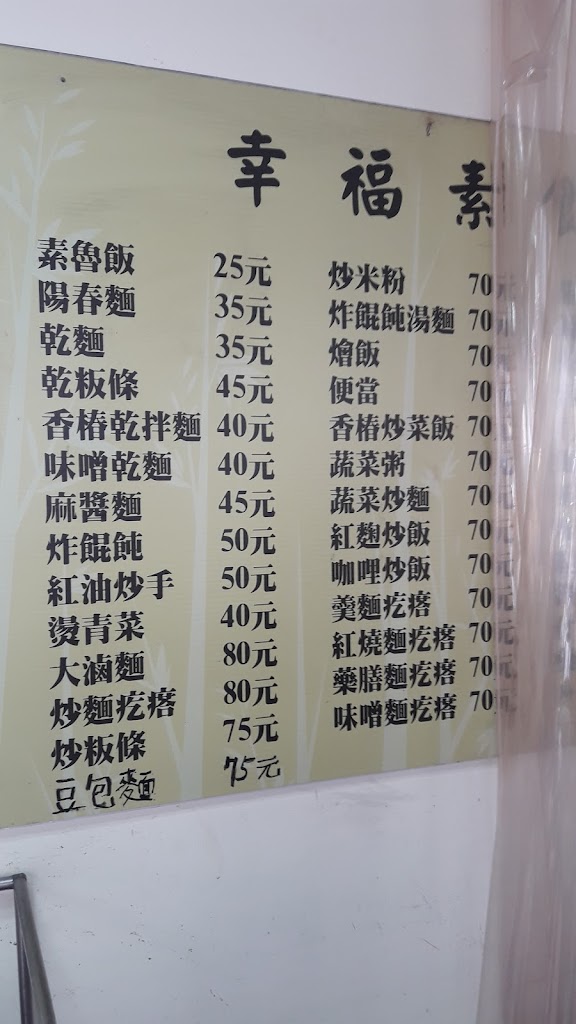 幸福素
素魯飯 25元
陽春麵 35元
乾麵 35元
乾粄條 45元
香椿乾拌麵 40元
味噌乾麵 40元
麻醬麵 45元
炸餛飩 50元
紅油炒手 50元
燙青菜 40元
大滷麵 80元
炒麵疙瘩 80元
炒粄條 75元
豆包麵 75元
炒米粉 70元
炸餛飩湯麵 70元
燴飯 70元
便當 70元
香椿炒菜飯 70元
蔬菜粥 70元
蔬菜炒麵 70元
紅麴炒飯 70元
咖哩炒飯 70元
羹麵疙瘩 70元
紅燒麵疙瘩 70元
藥膳麵疙瘩 70元
味噌麵疙瘩 70元